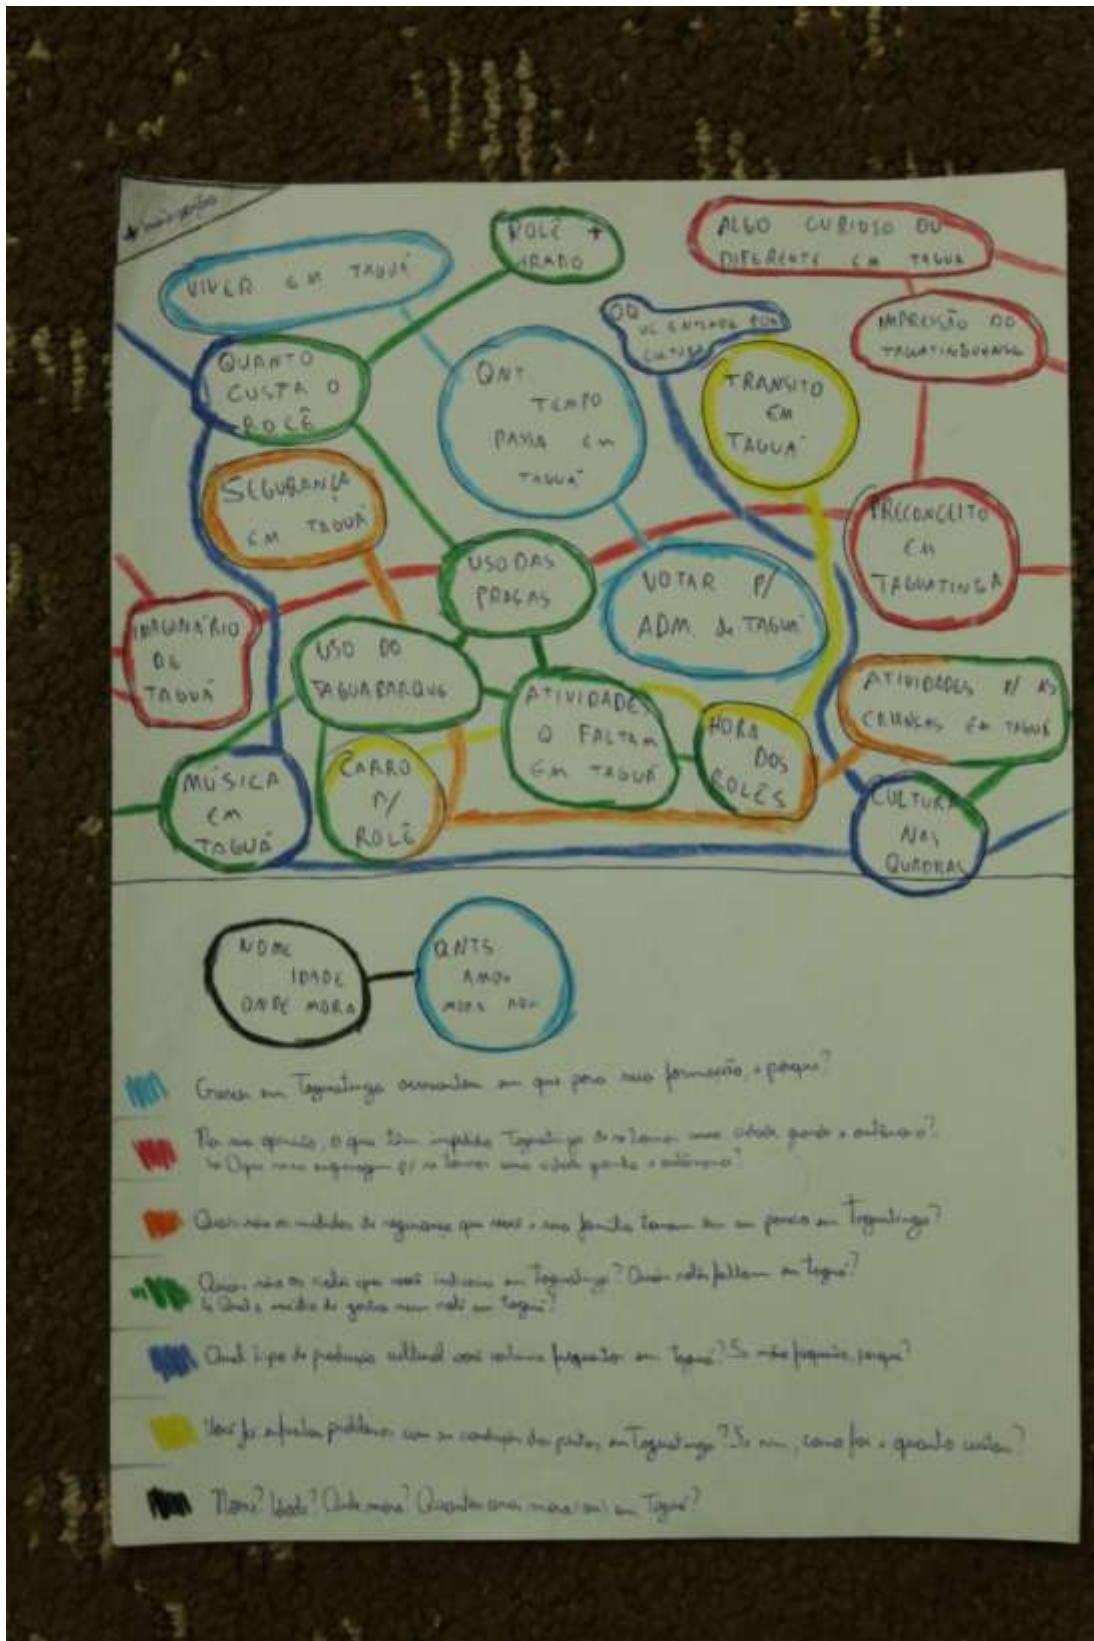 ROLÊ +
ERRADO
ALGO CURIOSO OU
DIFERENTE EM TAGUÁ
VIVER EM TAGUÁ
OQ
VC ENTENDE POR
CULTURA
IMPRESSÃO DO
TAGUATINGUENSE
QUANTO
CUSTA O
ROLÊ
QNT.
TEMPO
PASSA EM
TAGUÁ
TRANSITO
EM
TAGUÁ
SEGURANÇA
EM TAGUÁ
PRECONCEITO
EM
TAGUATINGA
USO DAS
PRAÇAS
VOTAR P/
ADM. de TAGUÁ
IMAGINÁRIO
DE
TAGUÁ
USO DO
TAGUAPARQUE
ATIVIDADES
Q FALTAM
EM TAGUÁ
HORA
DOS
ROLÊS
ATIVIDADES P/ AS
CRIANÇAS EM TAGUÁ
MÚSICA
EM
TAGUÁ
CARRO
P/
ROLÊ
CULTURA
NAS
QUADRAS
NOME
IDADE
ONDE MORA
QNTS
ANOS
MORA
Crescer em Taguatinga acrescentou em que para sua formação, e porque?
Na sua opinião, o que têm impedido Taguatinga de se tornar uma cidade grande e autônoma?
uma cidade grande e autônoma?
Quais são as medidas de segurança que você e sua família tomam em um passeio em Taguatinga?
Quais são os rolês que você indicaria em Taguatinga? Quais rolês faltam em Taguá?
Qual a média de gastos num rolê em Taguá?
Qual tipo de produção cultural você costuma frequentar em Taguá? Se não frequenta, porque?
Você já enfrentou problemas com as condições das pistas em Taguatinga? Se sim, como foi e quanto custou?
Nome? Idade? Onde mora? Quantos anos mora em Taguá?